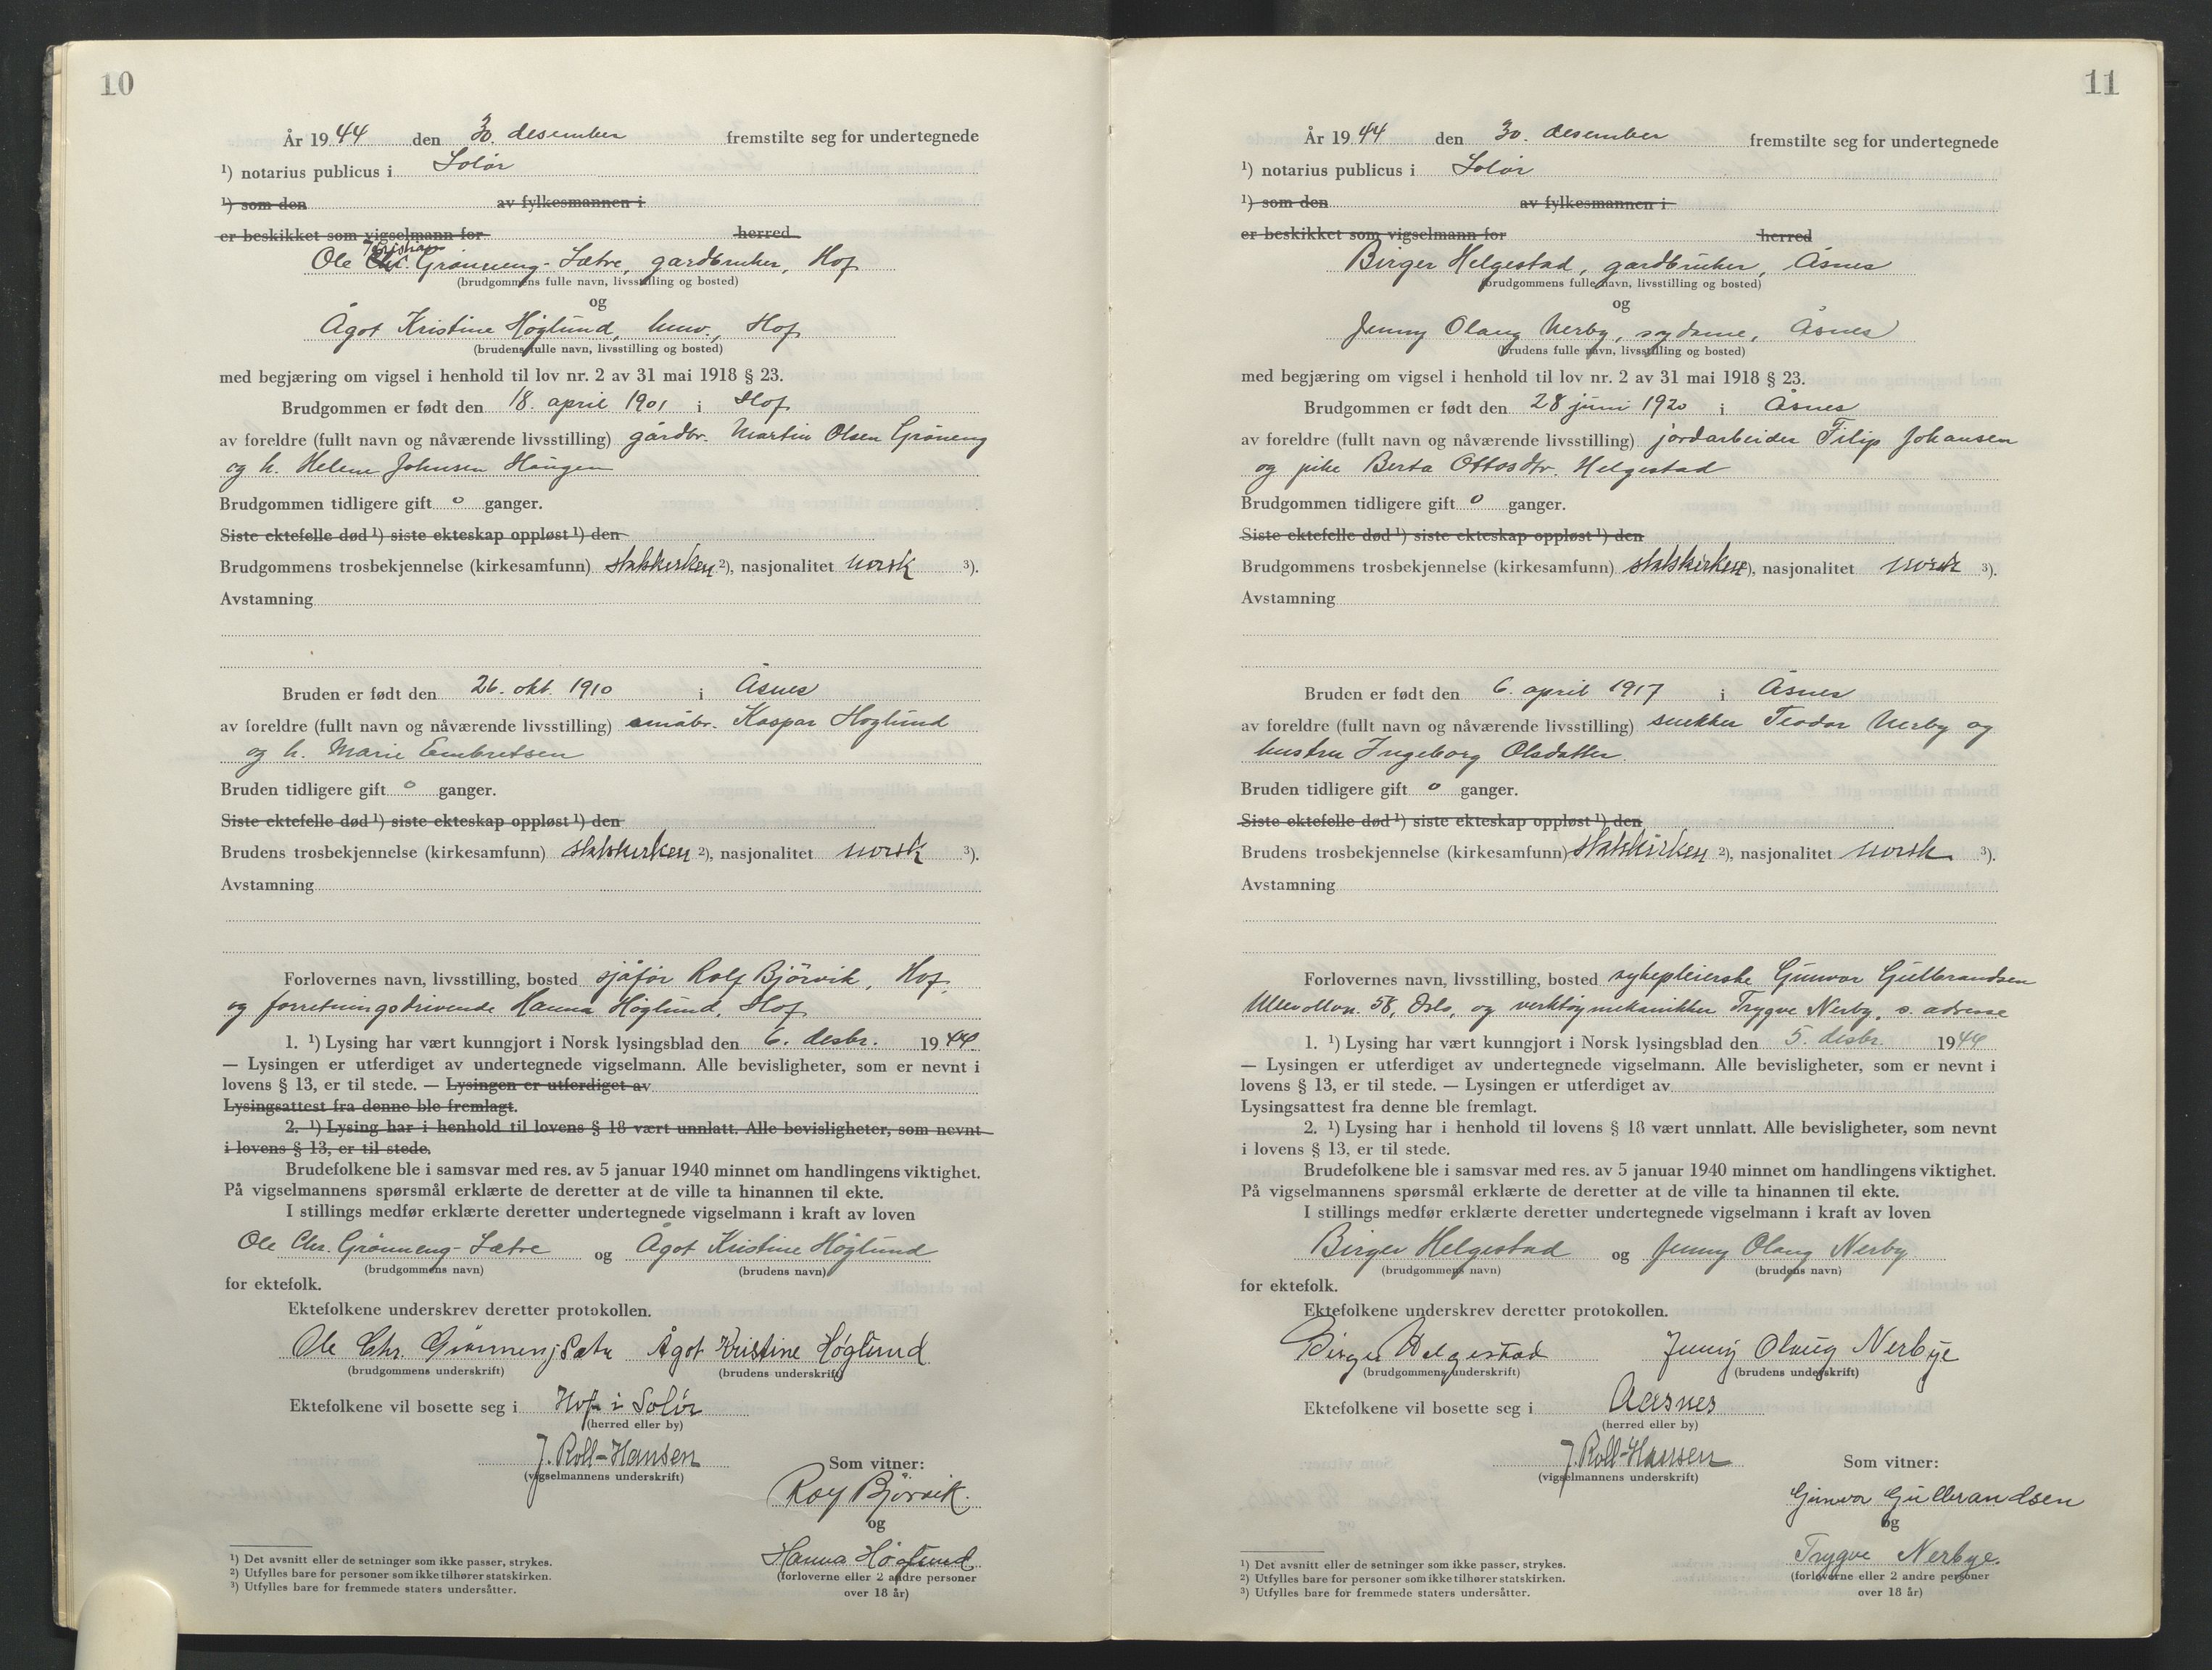 10
År 1944 den 30. desember fremstilte seg for undertegnede
¹) notarius publicus i Solør
¹) som den av fylkesmannen i
er beskikket som vigselmann for herred
Kristian
Ole Chr. Grønneng-Sætre, gardbruker, Hof
(brudgommens fulle navn, livsstilling og bosted)
og
Ågot Kristine Høglund, husv., Hof
(brudens fulle navn, livsstilling og bosted)
med begjæring om vigsel i henhold til lov nr. 2 av 31 mai 1918 § 23.
Brudgommen er født den 18. april 1901 i Hof
av foreldre (fullt navn og nåværende livsstilling) gårdbr. Martin Olsen Grøneng
og h. Helene Johnsen Haugen
Brudgommen tidligere gift 0 ganger.
Siste ektefelle død ¹) siste ekteskap oppløst ¹) den
Brudgommens trosbekjennelse (kirkesamfunn) statskirken ²), nasjonalitet norsk ³).
Avstamning
Bruden er født den 26. okt. 1910 i Åsnes
av foreldre (fullt navn og nåværende livsstilling) småbr. Kaspar Høglund
og h. Marie Embretsen
Bruden tidligere gift 0 ganger.
Siste ektefelle død ¹) siste ekteskap oppløst ¹) den
Brudens trosbekjennelse (kirkesamfunn) statskirken ²), nasjonalitet norsk ³).
Avstamning
Forlovernes navn, livsstilling, bosted sjåfør Rolf Bjørvik, Hof,
og forretningsdrivende Hanna Høglund, Hof
1. ¹) Lysing har vært kunngjort i Norsk lysingsblad den 6. desbr. 1944.
— Lysingen er utferdiget av undertegnede vigselmann. Alle bevisligheter, som er nevnt i
lovens § 13, er til stede. — Lysingen er utferdiget av
Lysingsattest fra denne ble fremlagt.
2. ¹) Lysing har i henhold til lovens § 18 vært unnlatt. Alle bevisligheter, som nevnt
i lovens § 13, er til stede.
Brudefolkene ble i samsvar med res. av 5 januar 1940 minnet om handlingens viktighet.
På vigselmannens spørsmål erklærte de deretter at de ville ta hinannen til ekte.
I stillings medfør erklærte deretter undertegnede vigselmann i kraft av loven
Ole Chr. Grønneng-Sætre og Ågot Kristine Høglund
(brudgommens navn) (brudens navn)
for ektefolk.
Ektefolkene underskrev deretter protokollen.
Ole Chr. Grønneng Sætre Ågot Kristine Høglund
(brudgommens underskrift) (brudens underskrift)
Ektefolkene vil bosette seg i Hof i Solør
(herred eller by)
J. Roll-Hansen
(vigselmannens underskrift)
Som vitner:
Rolf Bjørvik.
og
Hanna Høglund
(forloverne eller 2 andre personer
over 18 år)
¹) Det avsnitt eller de setninger som ikke passer, strykes.
²) Utfylles bare for personer som ikke tilhører statskirken.
³) Utfylles bare for fremmede staters undersåtter.
11
År 1944 den 30. desember fremstilte seg for undertegnede
¹) notarius publicus i Solør
¹) som den av fylkesmannen i
er beskikket som vigselmann for herred
Birger Helgestad, gardbruker, Åsnes
(brudgommens fulle navn, livsstilling og bosted)
og
Jenny Olaug Nerby, sydame, Åsnes
(brudens fulle navn, livsstilling og bosted)
med begjæring om vigsel i henhold til lov nr. 2 av 31 mai 1918 § 23.
Brudgommen er født den 28 juni 1920 i Åsnes
av foreldre (fullt navn og nåværende livsstilling) jordarbeider Filip Johansen
og pike Berta Ottosdtr. Helgestad
Brudgommen tidligere gift 0 ganger.
Siste ektefelle død ¹) siste ekteskap oppløst ¹) den
Brudgommens trosbekjennelse (kirkesamfunn) statskirken ²), nasjonalitet norsk ³).
Avstamning
Bruden er født den 6. april 1917 i Åsnes
av foreldre (fullt navn og nåværende livsstilling) snekker Teodor Nerby og
hustru Ingeborg Olsdatter
Bruden tidligere gift 0 ganger.
Siste ektefelle død ¹) siste ekteskap oppløst ¹) den
Brudens trosbekjennelse (kirkesamfunn) statskirken ²), nasjonalitet norsk ³).
Avstamning
Forlovernes navn, livsstilling, bosted sykepleierske Gunvor Gulbrandsen
Ullevollvn. 58, Oslo, og verktøymekanikker Trygve Nerby, s. adresse
1. ¹) Lysing har vært kunngjort i Norsk lysingsblad den 5. desbr. 1944
— Lysingen er utferdiget av undertegnede vigselmann. Alle bevisligheter, som er nevnt i
lovens § 13, er til stede. — Lysingen er utferdiget av
Lysingsattest fra denne ble fremlagt.
2. ¹) Lysing har i henhold til lovens § 18 vært unnlatt. Alle bevisligheter, som nevnt
i lovens § 13, er til stede.
Brudefolkene ble i samsvar med res. av 5 januar 1940 minnet om handlingens viktighet.
På vigselmannens spørsmål erklærte de deretter at de ville ta hinannen til ekte.
I stillings medfør erklærte deretter undertegnede vigselmann i kraft av loven
Birger Helgestad og Jenny Olaug Nerby
(brudgommens navn) (brudens navn)
for ektefolk.
Ektefolkene underskrev deretter protokollen.
Birger Helgestad Jenny Olaug Nerbye
(brudgommens underskrift) (brudens underskrift)
Ektefolkene vil bosette seg i Aasnes
(herred eller by)
J. Roll-Hansen
(vigselmannens underskrift)
Som vitner:
Gunvor Gulbrandsen
og
Trygve Nerbye.
(forloverne eller 2 andre personer
over 18 år)
¹) Det avsnitt eller de setninger som ikke passer, strykes.
²) Utfylles bare for personer som ikke tilhører statskirken.
³) Utfylles bare for fremmede staters undersåtter.